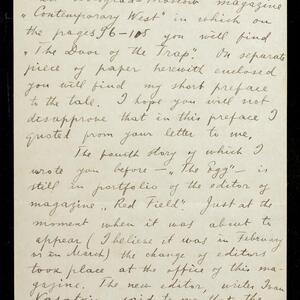 magazine
„Contemporary West" in which on
the pages 96-108 you will find
„The Door of the Trap". On separate
piece of paper herewith enclosed
you will find my short preface
to the tale. I hope you will not
disapprove that in this preface I
quoted from your letter to me.
The fourth story of which I
wrote you before — „The Egg" — is
still in portfolio of the editor of
magazine „Red Field" Just at the
moment when it was about to
appear (I believe it was in February
or in March) the change of editors
took place at the office of this ma-
gazine. The new editor, writer Ivan